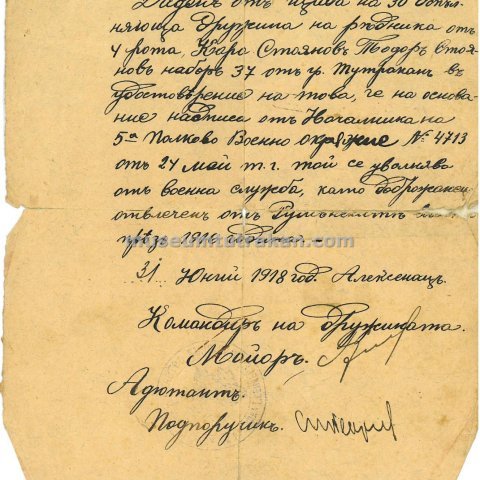 Даденъ отъ щаба на 50 допъл-
няюща дружина на рѣдника отъ
4 рота, Кара Стояновъ Тодоръ Стоя-
новъ наборъ 37 отъ гр. Тутраканъ въ
удостовѣрение на това, че на основа-
ние надписа отъ Началника на
5а Полково Военно окрѫжие № 4713
отъ 24 май т.г. той се уволнява
отъ военна служба, като доброжанец
отвлеченъ отъ Румънските
прѣз 1916 год.
museumtutrakan.com
31 Юний 1918 год. Алексенацъ.
Командиръ на дружината
Майоръ.
Адютантъ.
Подпоручик.